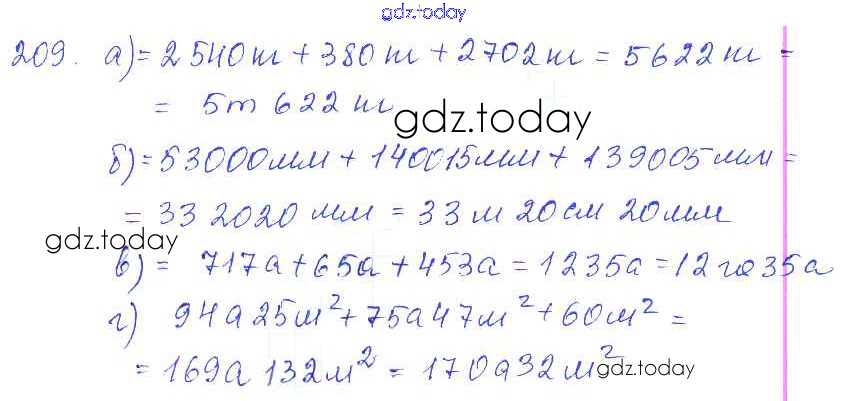 gdz.today
209. а) = 2540 кг + 380 кг + 2702 кг = 5622 кг =
= 5т 622 кг
gdz.today
б) = 53000мм + 140015мм + 139005мм =
= 332020 мм = 33м 20см 20мм
gdz.today
в) = 717а + 65а + 453а = 1235а = 12га 35а
г) 94а 25м² + 75а 47м² + 60м² =
= 169а 132м² = 170а 32м²
gdz.today